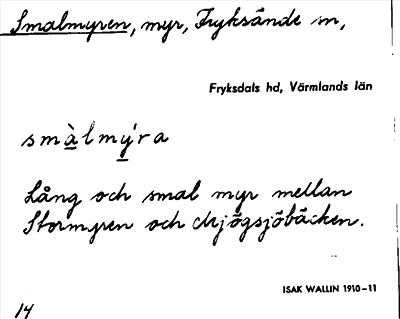 Smalmyren, myr, Fryksände sn,
Fryksdals hd, Värmlands län
smàlmýra
Lång och smal myr mellan
Stormyren och Mjögsjöbäcken.
ISAK WALLIN 1910-11
14